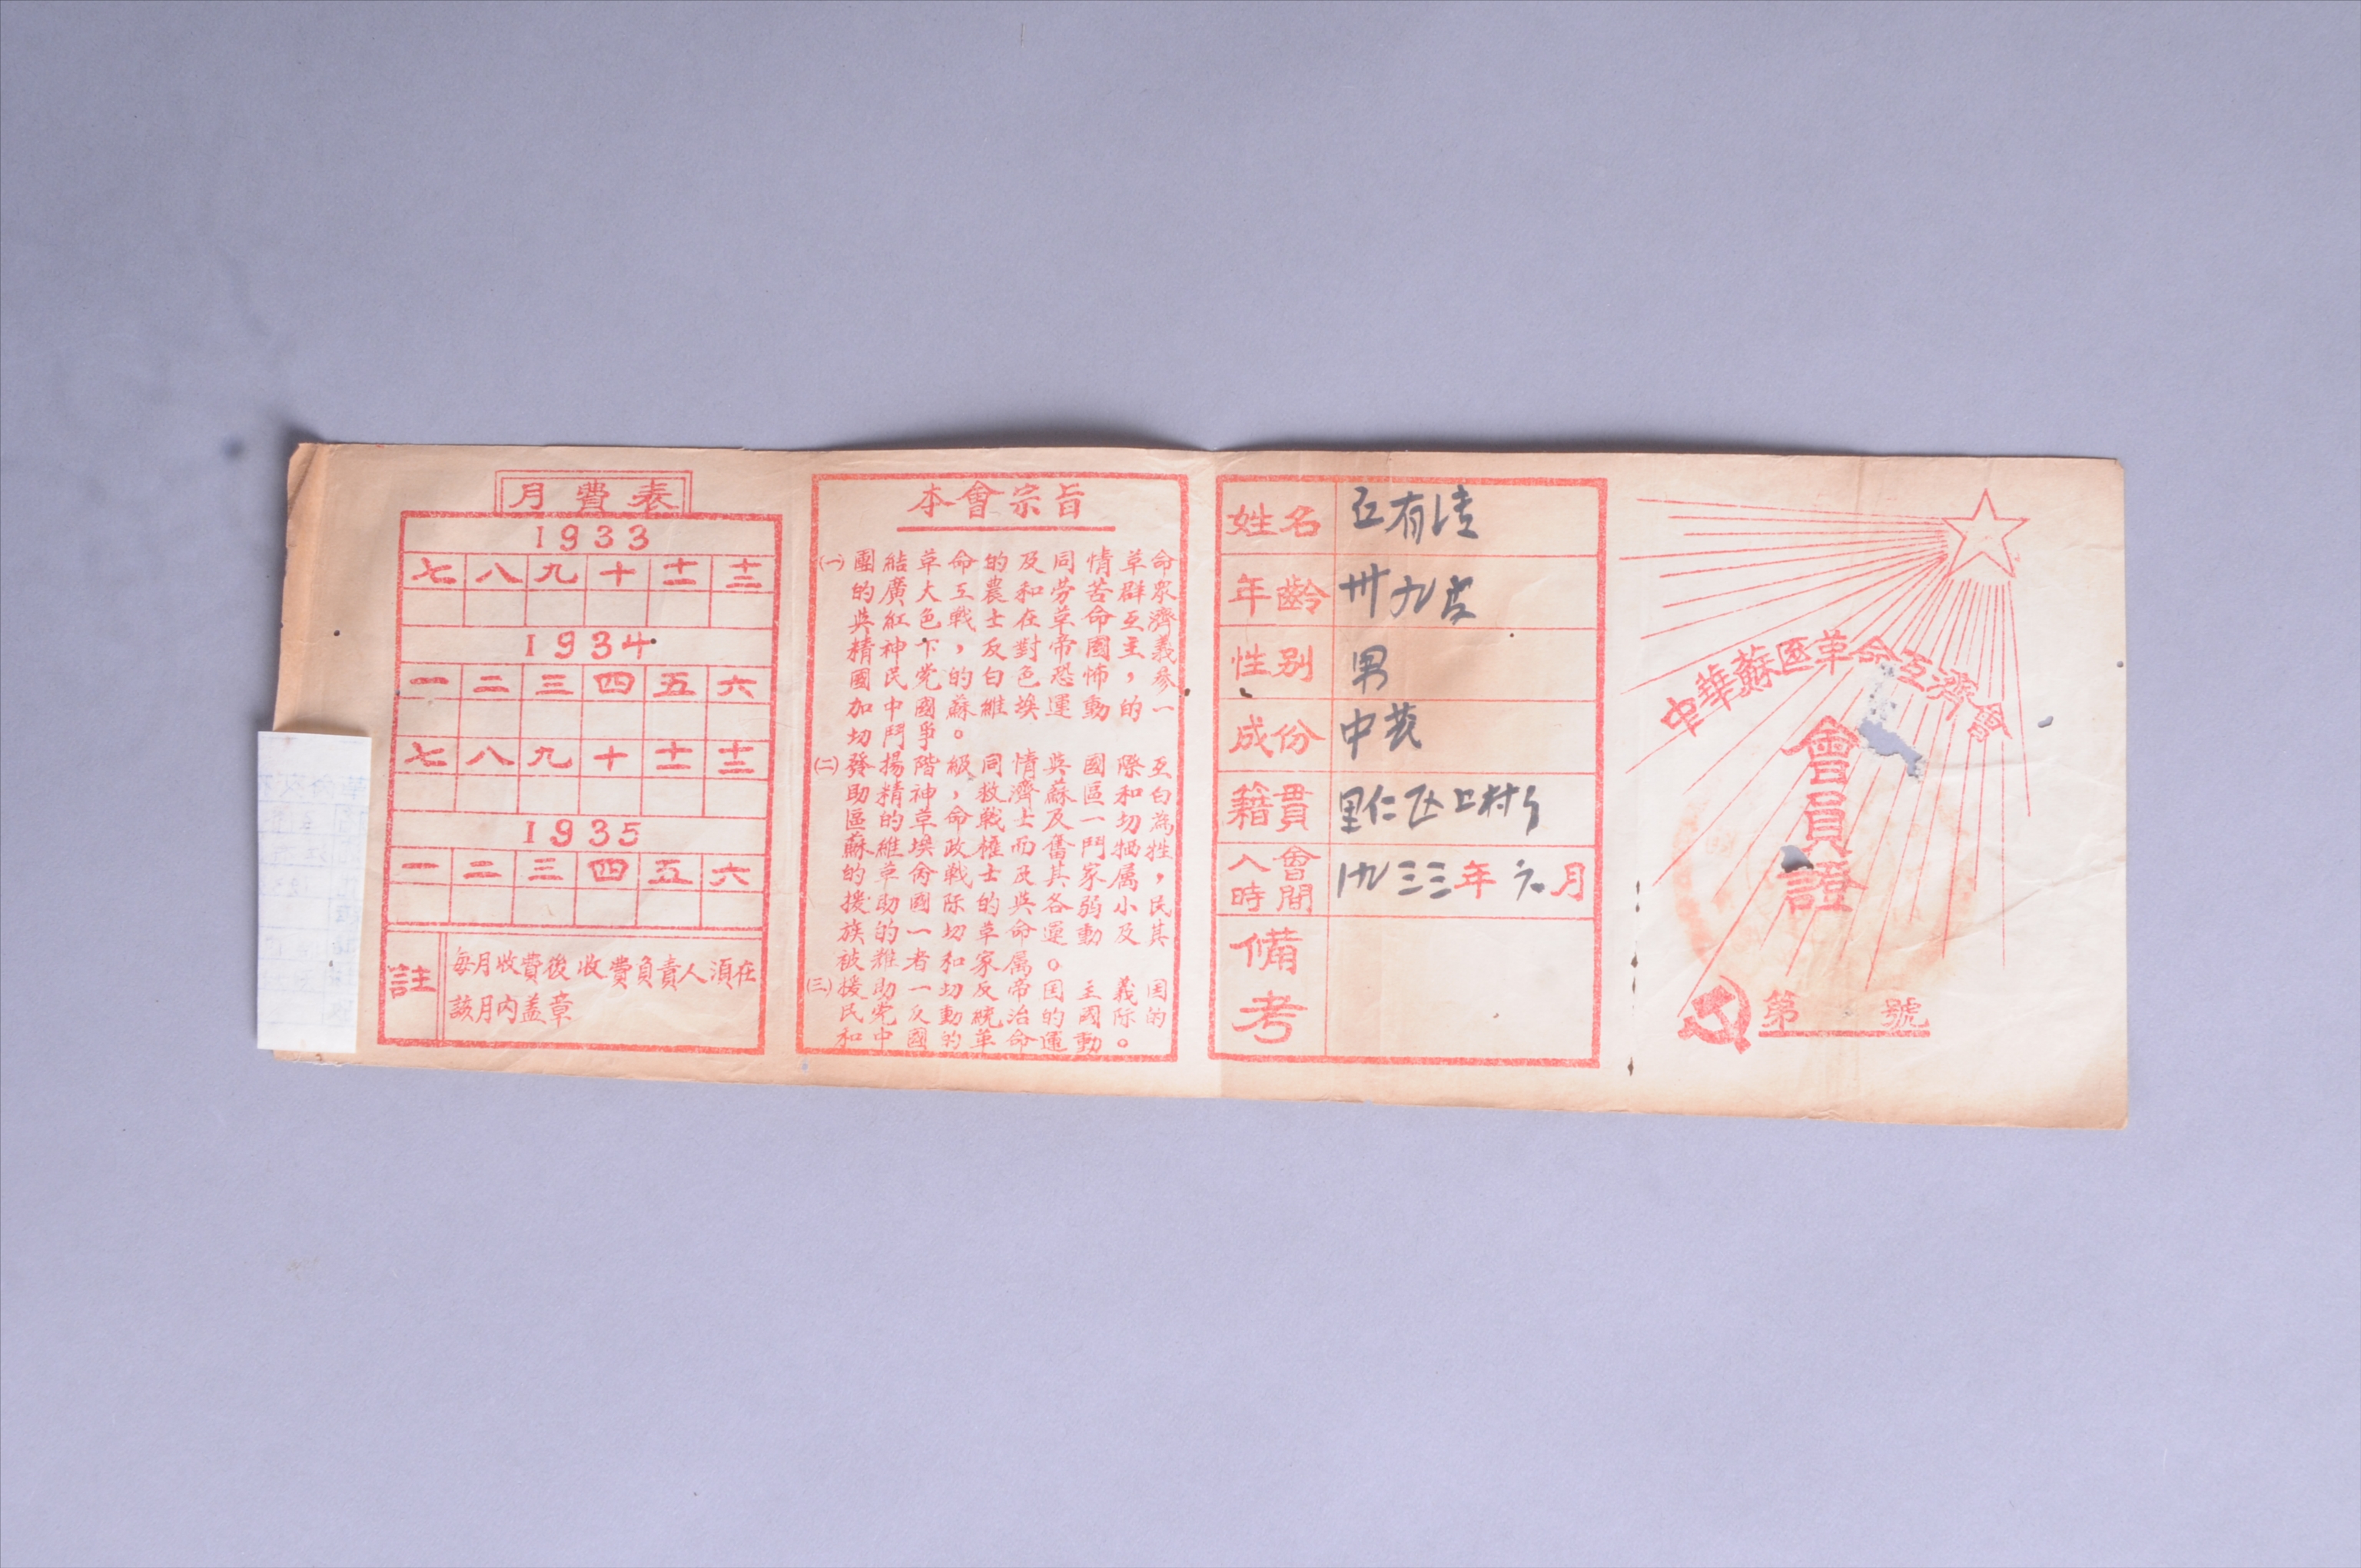 中華蘇區革命互濟會
會員證
第 號
姓名 有
年齡 卅九岁
性別 男
成份 中农
籍貫 里仁区上村乡
入會時間 一九三三年六月
備考
本會宗旨
(一) 團結革命的及同情革命
的廣大工農和勞苦群眾
與紅色戰士在革命互濟
精神下,反對帝國主義
國民党的白色恐怖,參
加中國蘇維埃運動的一
切鬥爭。
(二) 發揚階級同情與國際互
助精神,救濟蘇區和白
區的革命戰士及一切為
蘇維埃政權而奮鬥犧牲
的革命戰士及其家屬,
援助國际的與各弱小民
族的一切革命運動及其
被难者和家屬。
(三) 援助一切反帝国主義国
民党反動統治的國际的
和中國的革命運動。
月費表
1933
七 八 九 十 十一 十二
1934
一 二 三 四 五 六
七 八 九 十 十一 十二
1935
一 二 三 四 五 六
註
每月收費後收費負責人須在
該月内盖章